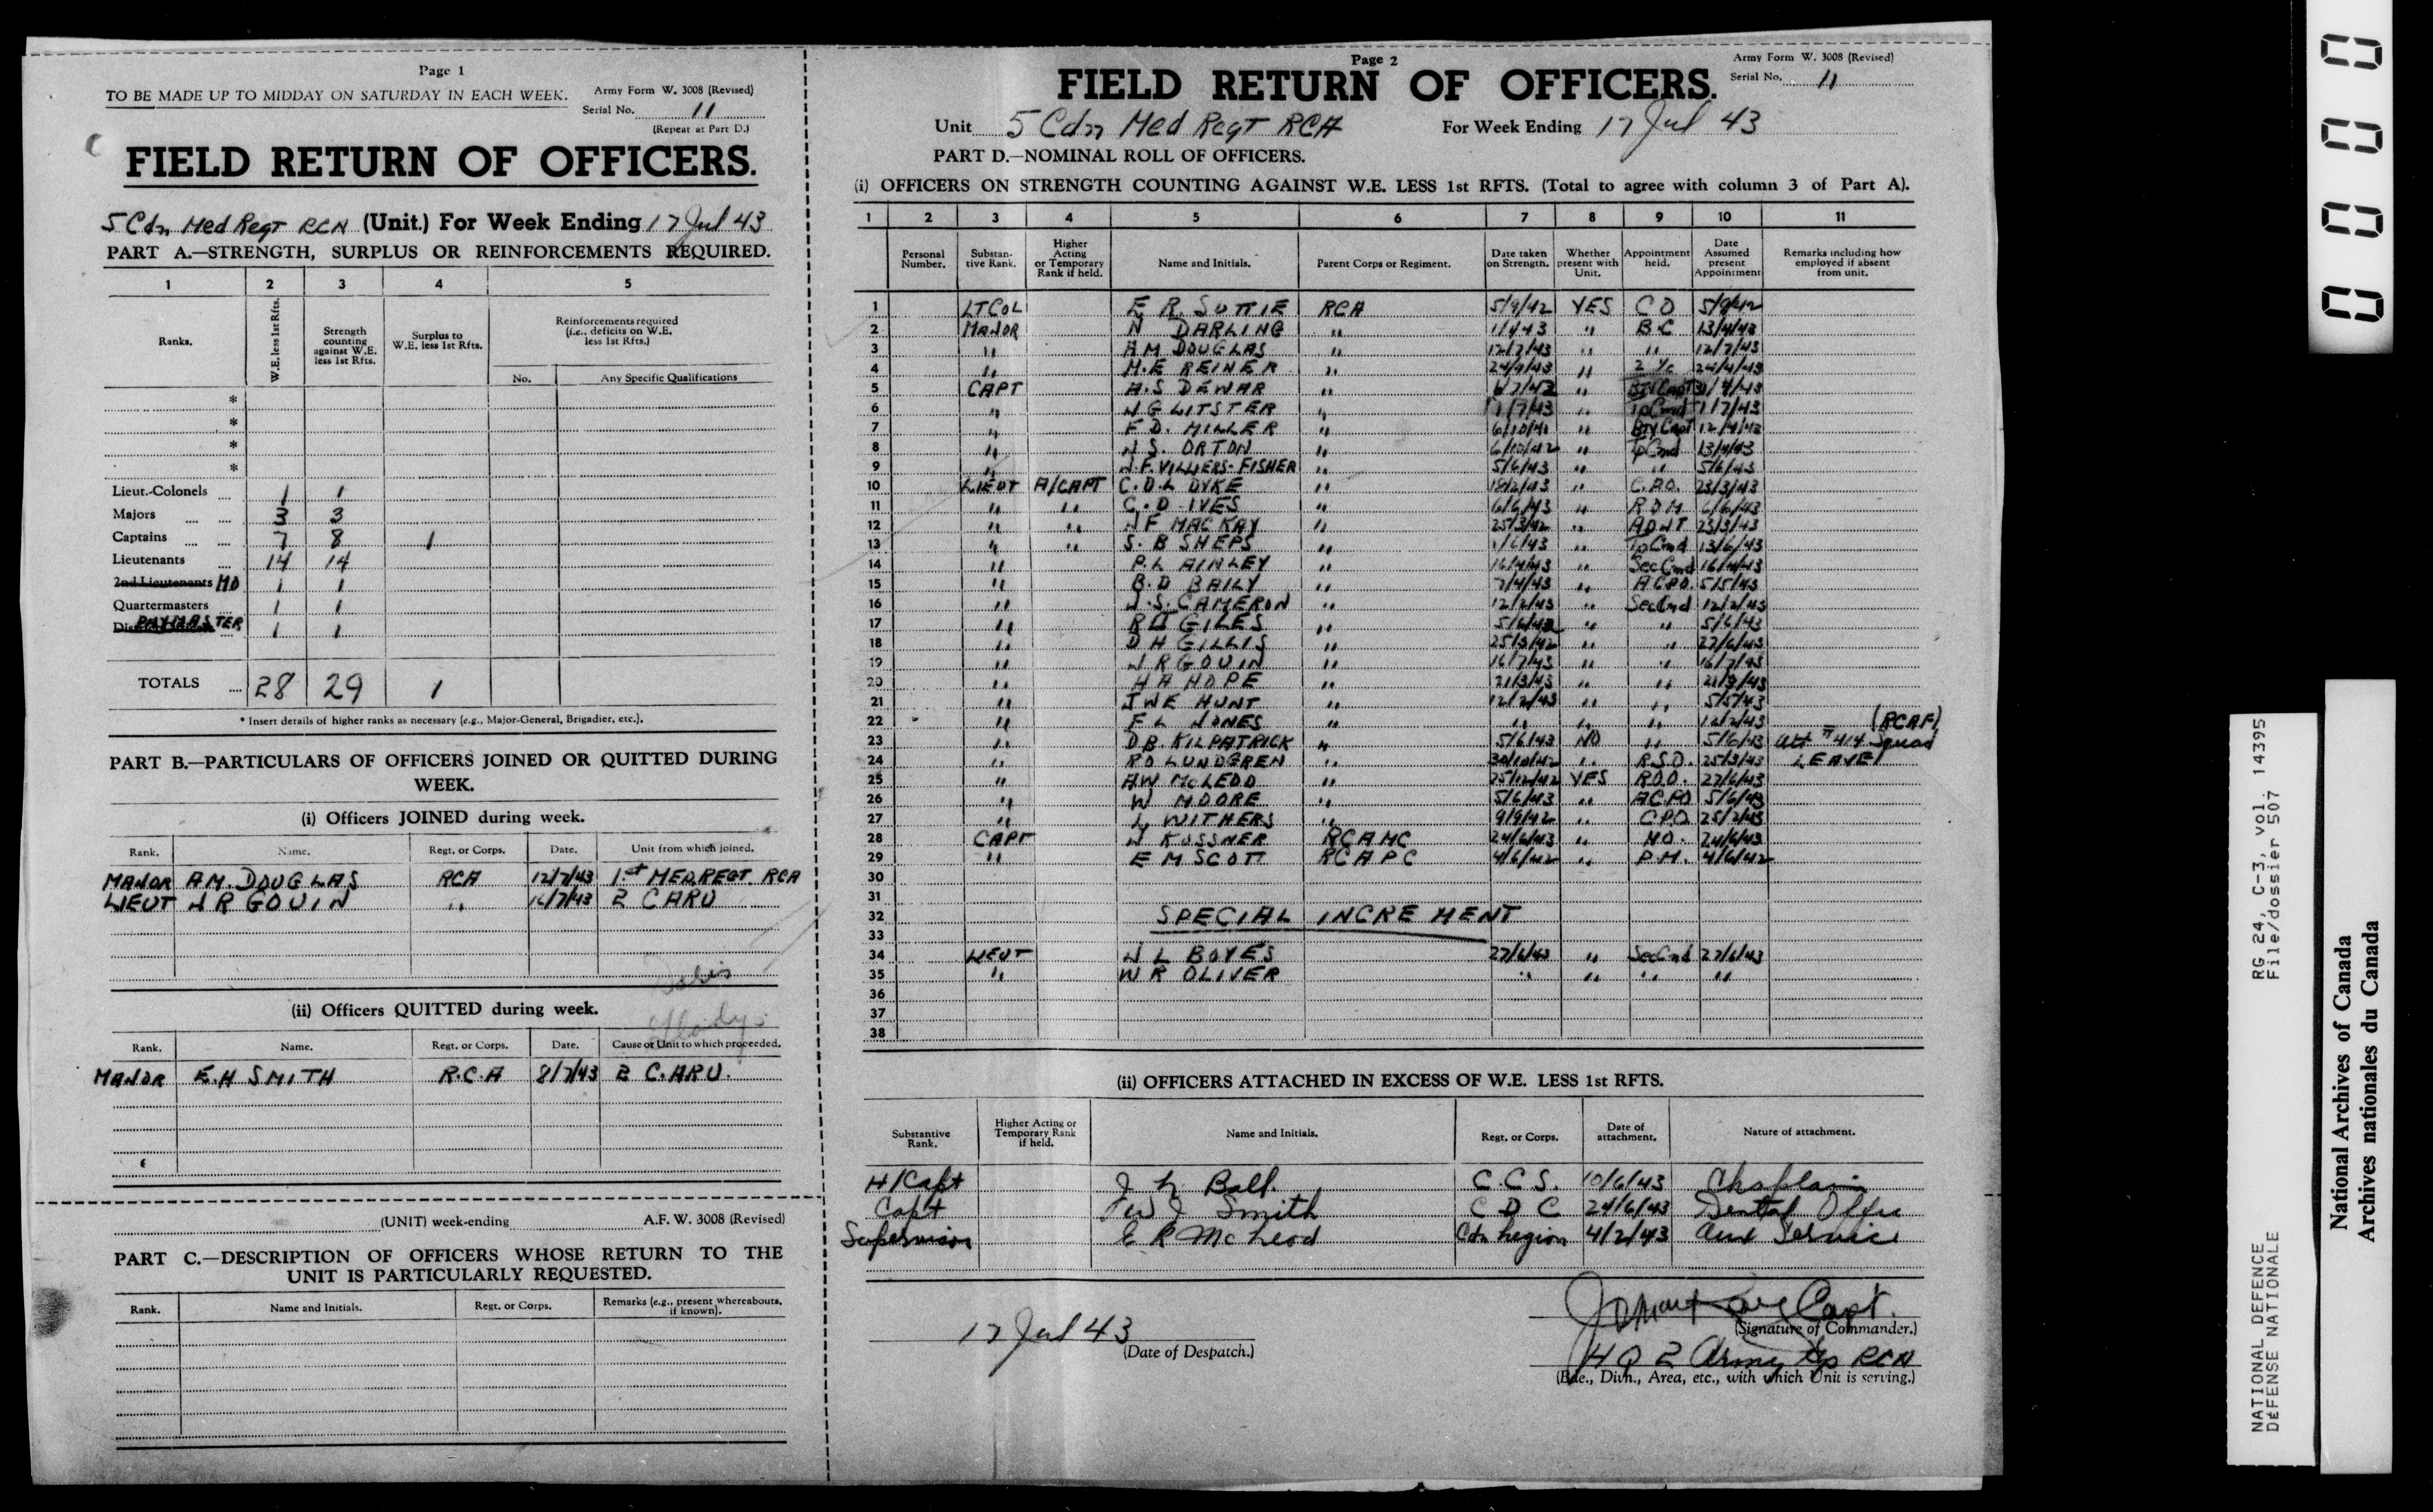 Page 1
TO BE MADE UP TO MIDDAY ON SATURDAY IN EACH WEEK.
Army Form W. 3008 (Revised)
Serial No. 11
(Repeat at Part D.)
FIELD RETURN OF OFFICERS.
5 Cdn Med Regt RCA (Unit.) For Week Ending 17 Jul 43
PART A.—STRENGTH, SURPLUS OR REINFORCEMENTS REQUIRED.
1 2 3 4 5
Ranks. W.E. less 1st Rfts. Strength counting against W.E. less 1st Rfts. Surplus to W.E. less 1st Rfts. Reinforcements required (i.e., deficits on W.E. less 1st Rfts.)
No. Any Specific Qualifications
*
*
*
*
Lieut.-Colonels 1 1
Majors 3 3
Captains 7 8 1
Lieutenants 14 14
2nd Lieutenants MO 1 1
Quartermasters 1 1
PAYMASTER 1 1
TOTALS 28 29 1
* Insert details of higher ranks as necessary (e.g., Major-General, Brigadier, etc.).
PART B.—PARTICULARS OF OFFICERS JOINED OR QUITTED DURING WEEK.
(i) Officers JOINED during week.
Rank. Name. Regt. or Corps. Date. Unit from which joined.
MAJOR A.M. DOUGLAS RCA 12/7/43 1st MED. REGT. RCA
LIEUT J R GOUIN " 16/7/43 2 CARU
(ii) Officers QUITTED during week.
Rank. Name. Regt. or Corps. Date. Cause or Unit to which proceeded.
MAJOR E.H SMITH R.C.A 8/7/43 2 C.ARU.
(UNIT) week-ending A.F.W. 3008 (Revised)
PART C.—DESCRIPTION OF OFFICERS WHOSE RETURN TO THE UNIT IS PARTICULARLY REQUESTED.
Rank. Name and Initials. Regt. or Corps. Remarks (e.g., present whereabouts, if known).
Page 2
FIELD RETURN OF OFFICERS.
Army Form W. 3008 (Revised)
Serial No. 11
Unit 5 Cdn Med Regt RCA For Week Ending 17 Jul 43
PART D.—NOMINAL ROLL OF OFFICERS.
(i) OFFICERS ON STRENGTH COUNTING AGAINST W.E. LESS 1st RFTS. (Total to agree with column 3 of Part A).
1 2 3 4 5 6 7 8 9 10 11
Personal Number. Substantive Rank. Higher Acting or Temporary Rank if held. Name and Initials. Parent Corps or Regiment. Date taken on Strength. Whether present with Unit. Appointment held. Date Assumed present Appointment Remarks including how employed if absent from unit.
1 LT COL E R. SUTTIE RCA 5/9/42 YES CO 5/9/42
2 MAJOR N DARLING " 1/4/43 " B C 13/4/43
3 " A M DOUGLAS " 12/7/43 " " 12/7/43
4 " H.E REINER " 24/4/43 " 2 i/c 24/4/43
5 CAPT A.S DEWAR " "
6 " J G LITSTER " 1/7/43 " Tp Cmd 1/7/43
7 " F D. MILLER " 6/10/41 " Bty Capt 12/4/43
8 " J S. ORTON " 6/10/42 " Tp Cmd 13/4/43
9 " J. F. VILLIERS-FISHER " 5/6/43 " " 5/6/43
10 LIEUT A/CAPT C.D.L DYKE " 18/2/43 " C.P.O. 23/3/43
11 " " C.D IVES " 6/6/43 " R Q M 6/6/43
12 " " J F MACKAY " 25/3/42 " ADJT 23/3/43
13 " " S. B SHEPS " 1/6/43 " Tp Cmd 13/6/43
14 " P.L AINLEY " 16/4/43 " Sec Cmd 16/4/43
15 " B.D BAILY " 7/4/43 " A.C.P.O. 5/5/43
16 " J.S. CAMERON " 12/2/43 " Sec Cmd 12/2/43
17 " GILES " " " 5/6/43
18 " D H GILLIS " 25/3/42 " " 27/6/43
19 " J R GOUIN " 16/7/43 " " 16/7/43
20 " H A HOPE " 21/3/43 " " 21/3/43
21 " J W E HUNT " 12/2/43 " " 5/5/43
22 " F L JONES " " " " 12/2/43
23 " D B. KILPATRICK " 5/6/43 NO " 5/6/43 Att #414 Squad (RCAF)
24 " R O LUNDGREN " 30/10/42 " R.S.O. 25/3/43 LEAVE
25 " A W McLEOD " 25/12/42 YES R.O.O. 27/6/43
26 " W MOORE " 5/6/43 " A.C.P.O 5/6/43
27 " L WITHERS " 9/9/42 " C.P.O. 25/2/43
28 CAPT J KUSSNER RCAMC 24/6/43 " M.O. 24/6/43
29 " E M SCOTT RCAPC 4/6/42 " P.M. 4/6/42
30
31
32 SPECIAL INCREMENT
33
34 LIEUT J L BOYES 27/6/43 " Sec Cmd 27/6/43
35 " W R OLIVER " " " "
36
37
38
(ii) OFFICERS ATTACHED IN EXCESS OF W.E. LESS 1st RFTS.
Substantive Rank. Higher Acting or Temporary Rank if held. Name and Initials. Regt. or Corps. Date of attachment. Nature of attachment.
H/Capt Ball C.C.S. 10/6/43 Chaplain
Capt Smith C D C 24/6/43 Dental Offr
Supervisor E R McLeod Cdn Legion 4/2/43 Aux Service
17 Jul 43
(Date of Despatch.)
Capt.
(Signature of Commander.)
HQ 2 Army Gp RCA
(Bde., Divn., Area, etc., with which Unit is serving.)
0000
NATIONAL DEFENCE RG 24, C-3, vol. 14395
DÉFENSE NATIONALE File/dossier 507
National Archives of Canada
Archives nationales du Canada